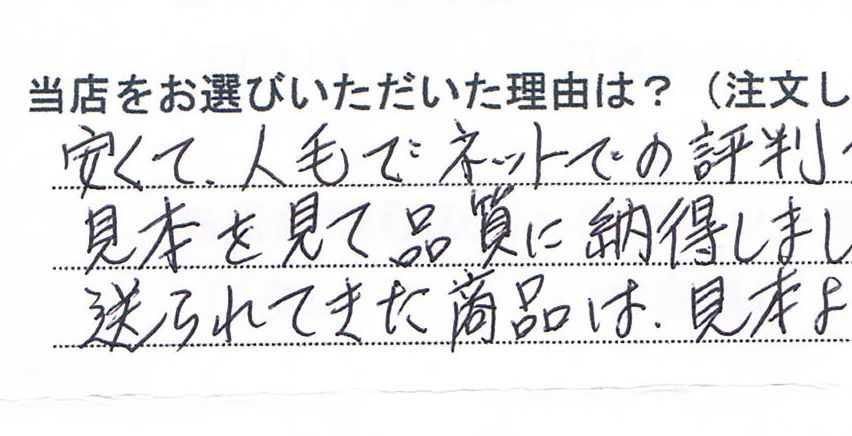 当店をお選びいただいた理由は？（注文し
安くて、人毛でネットでの評判
見本を見て品質に納得しまし
送られてきた商品は、見本よ